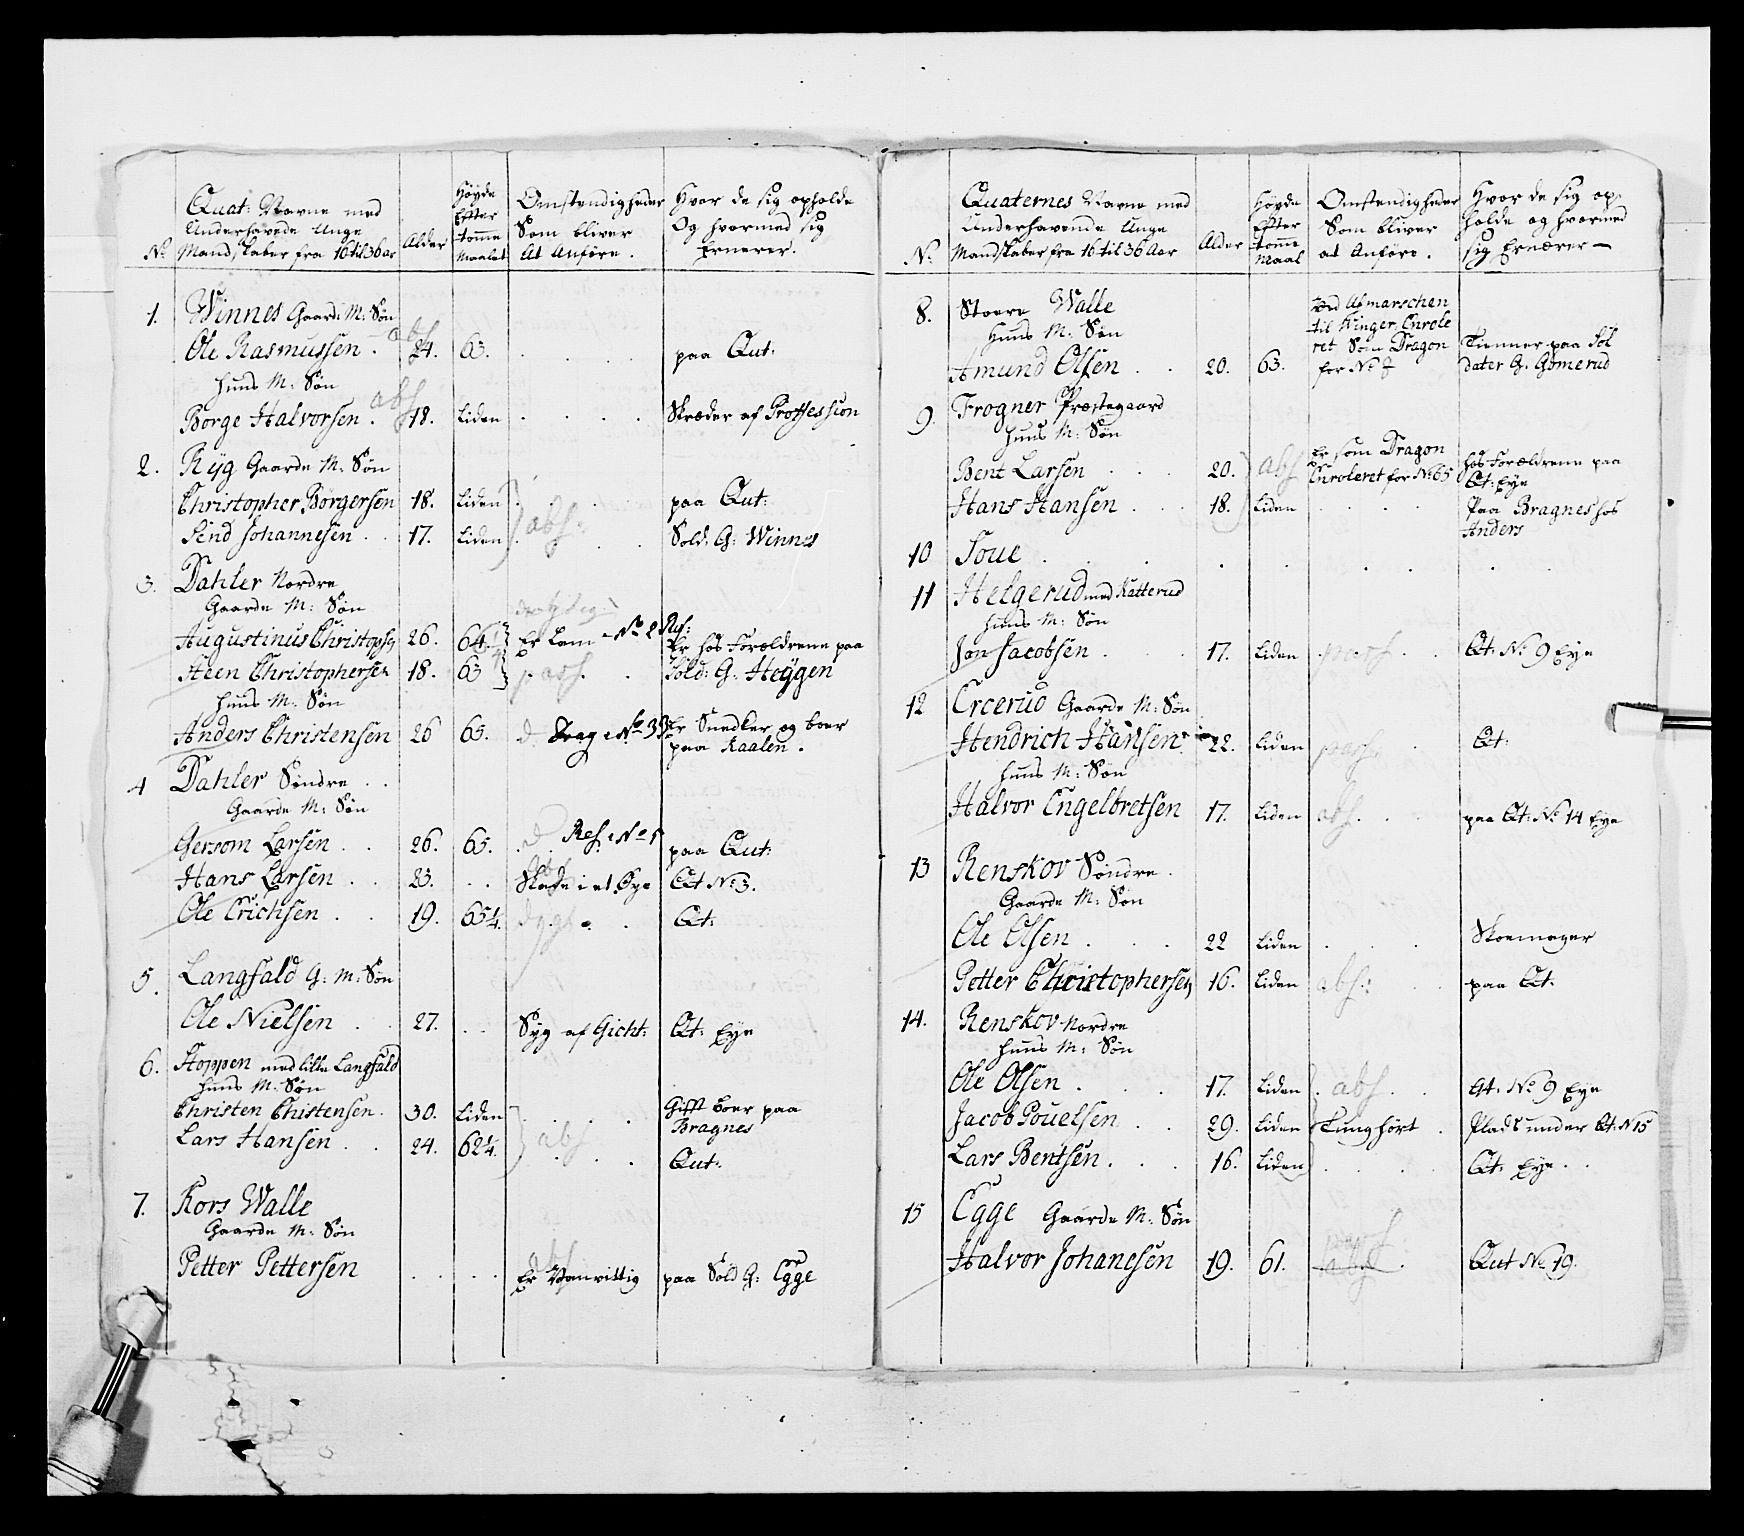 Quat: Navne med
Underhavende Unge
No Mandskaber fra 16 til 36 aar
Alder
Høyde Efter tomme Maalet
Omstendigheder Som bliver At Anføre.
Hvor de sig opholde Og hvormed sig Ernærer.
1. Winnes Gaard: M: Søn
Ole Rasmussen . abs 24. 63. . . . . paa Qut:
Huus M: Søn
Borge Halvorsen . abs 18. Liden . . . . Skræder af Proffession
2. Ryg Gaarde M: Søn
Christopher Børgersen 18. Liden . . paa Qut:
abs:
Simd Johannesen . . 17. Liden . . Sold: G: Winnes
3. Dahler Nordre
Gaarde M: Søn
Augustinus Christophs 26. 64 Er Lam No 2 Res: Er hos Forældrene paa
Steen Christophersen 18. 63 pass. . Sold: G. Heÿgen
Huus M: Søn
Anders Christensen 26 63. d. Drag: No 33 Er Snedker og boer
paa Kaalen.
4 Dahler Søndre . .
Gaarde M: Søn
Gersom Larsen . . 26. 65. d. Res: No 1 paa Qut:
Hans Larsen . . 23. . . Skade i et Øye Qt No 3.
Ole Erichsen . . 19. 65¼. . Qt:
5. Langfald G: M: Søn
Ole Nielsen . . 27. . . Syg af Gicht: Qt: Eye
6. Stoppen med lille Langfald
Huus M: Søn
Christen Chistensen. 30. Liden . . Gift boer paa
Bragnes
Lars Hansen . . 24. 62¼. abs . . Qut:
7. Kors Walle
Gaarde M: Søn
abs
Petter Pettersen . . . . Er Vanvittig paa Sold G: Egge
Quaternes Navne med
Underhavende Unge
No. Mandskaber fra 16 til 36 Aar
Alder
Høyde Efter tomme Maal
Omstendigheder Som bliver at Anføre.
Hvor de sig opholde og hvormed sig Ernærer
8. Stoere Walle
Huus M: Søn
ved Afmarschen
til Kinger, Enrole
ret Som Dragon
for No
Amund Olsen . . 20. 63. Tienner paa Sol
dater G. Gomerud
9. Frogner Præstegaard
Huus M: Søn
Bent Larsen . . . 20. abs Er som Dragon
Enroleret for No 65 hos Forældrene paa
Qt: Eye
Hans Hansen . . . 18. Liden . . . . Paa Bragnes hos
Anders
10 Soue . . . . . . . .
11 Helgerud med Katterud
Huus M: Søn
Jon Jacobsen . . 17. Liden pass . . Qt: No 9 Eye
12 Ercerud Gaarde M: Søn
Hendrich Hansen . 22. Liden pass . Qt:
Huus M: Søn
Halvor Engelbretsen 17. Liden abs . . paa Qt: No 14 Eye
13 Renskov Søndre .
Gaarde M: Søn
Ole Olsen . . . 22 Liden . . . Skoemager
Petter Christophersen 16. Liden abs: . paa Qt:
14. Renskov Nordre
Huus M: Søn
Ole Olsen . . . 17. Liden . abs . . Qt: No 9 Eye
Jacob Pouelsen . . 29. Liden Tunghørt . Plads under Qt: N 15
Lars Bentsen . . . 16. Liden . . . . Qt: Eye . .
15 Egge Gaarde M: Søn
pass
Halvor Johanesen 19. 61. abs . Qut No 19.